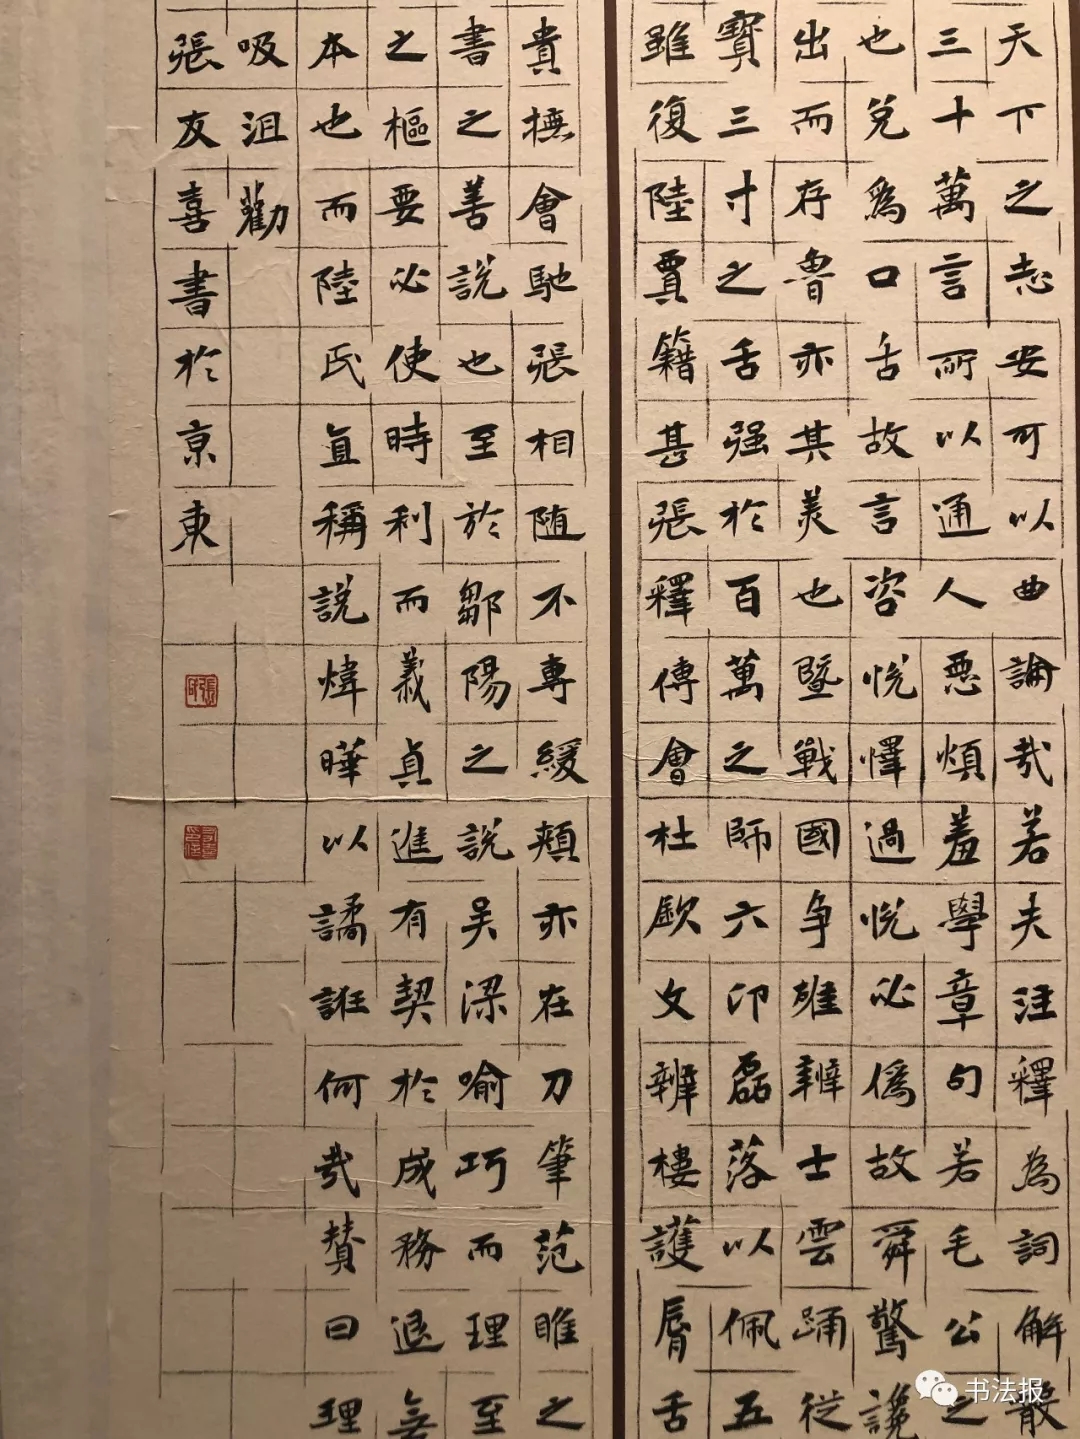 天下之志安可以曲論哉若夫注釋為詞解散
三十萬言所以通人惡煩羞學章句若毛公之
也兌為口舌故言咨悅懌過悅必偽故舜驚讒
出而存魯亦其美也暨戰國爭雄辨士雲踊從
寶三寸之舌强於百萬之師六印磊落以佩五
雖復陸賈籍甚張釋傅會杜欽文辨樓護脣舌
貴撫會馳張相随不專緩頰亦在刀筆范雎之
書之善說也至於鄒陽之說吴梁喻巧而理至
之樞要必使時利而義貞進有契於成務退無
本也而陸氏直稱說煒曄以譎誑何哉贊曰理
吸沮勸
張友喜書於京東
书法报